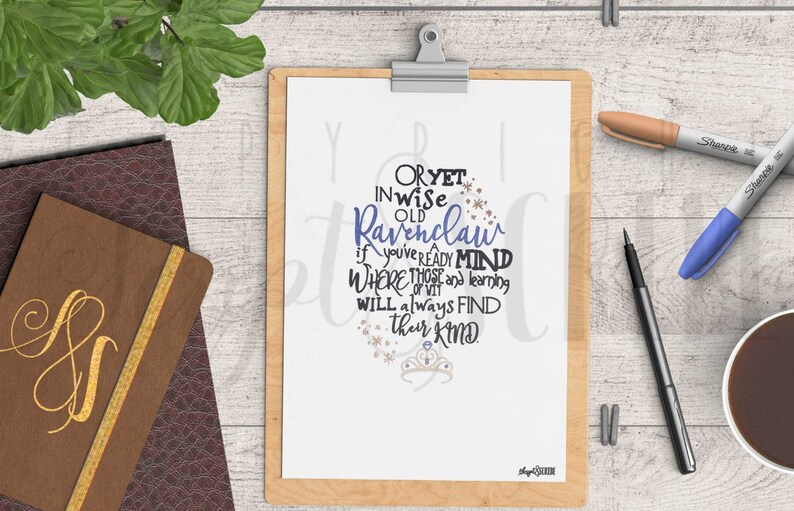 OR YET
IN wise
OLD
Ravenclaw
if you've A READY MIND
WHERE THOSE OF WIT and learning
WILL always FIND
their KIND.
Sharpie
Sharpie
S&S
Script&SCRIBE